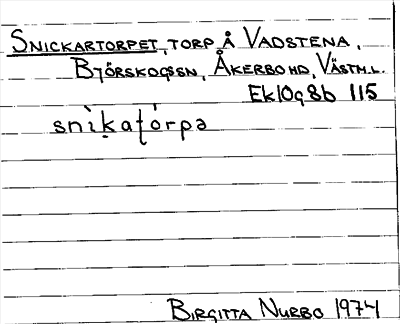 SNICKARTORPET, TORP Å VADSTENA,
BJÖRSKOGSSN, ÅKERBO HD, VÄSTM.L.
Ek10g8b 115
snìḳaʈórpə
BIRGITTA NURBO 1974